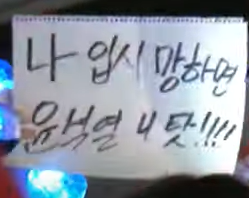 나 입시 망하면
윤석열 니 탓!!!!